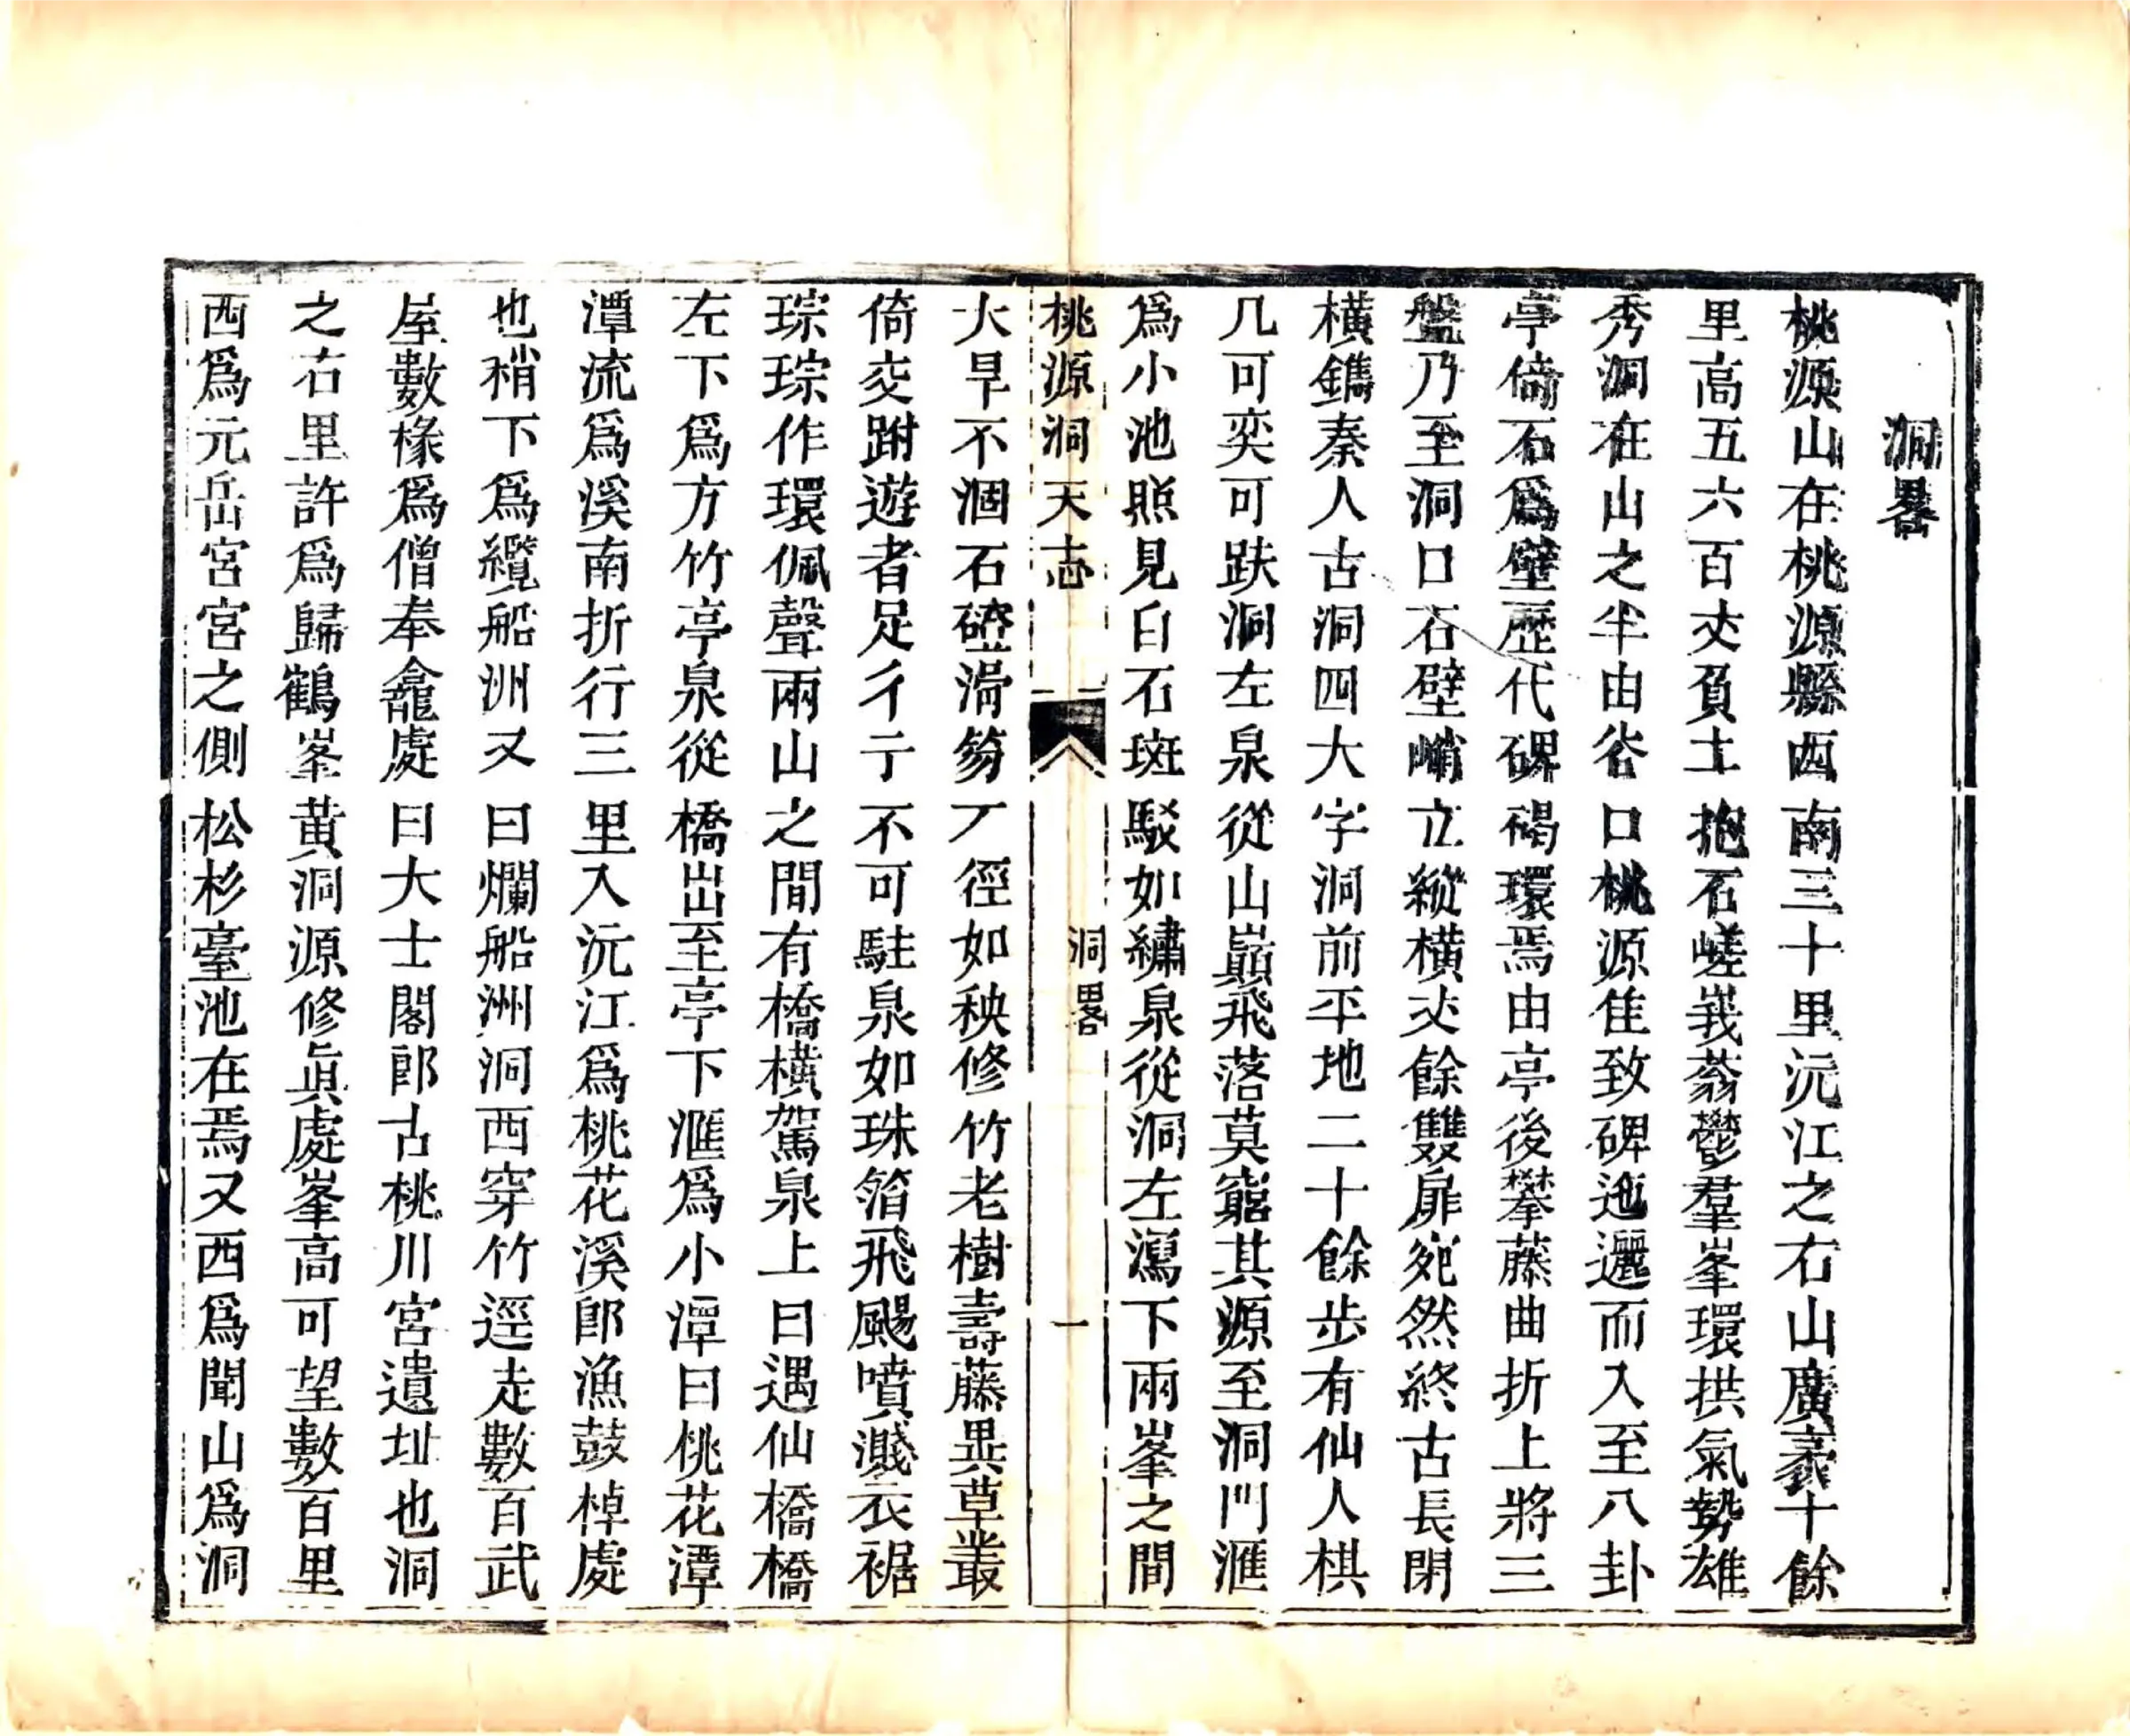 洞畧
桃源山在桃源縣西南三十里沅江之右山廣袤十餘
里高五六百丈負土抱石嵯峩蓊鬱羣峯環拱氣勢雄
秀洞在山之半由谷口桃源佳致碑迤邐而入至八卦
亭倚石爲壁歷代碑碣環焉由亭後攀藤曲折上將三
盤乃至洞口石壁峭立縱橫丈餘雙扉宛然終古長閉
橫鐫秦人古洞四大字洞前平地二十餘步有仙人棋
几可奕可趺洞左泉從山巔飛落莫窮其源至洞門滙
爲小池照見白石斑駁如繡泉從洞左瀉下兩峯之間
桃源洞天志 洞畧 一
大旱不涸石磴滑笏丆徑如秧修竹老樹壽藤異草叢
倚交跗遊者足彳亍不可駐泉如珠箔飛颺噴濺衣裾
琮琮作環佩聲兩山之間有橋橫駕泉上曰遇仙橋橋
左下爲方竹亭泉從橋出至亭下滙爲小潭曰桃花潭
潭流爲溪南折行三里入沅江爲桃花溪卽漁鼓棹處
也稍下爲纜船洲又曰爛船洲洞西穿竹逕走數百武
屋數椽爲僧奉龕處曰大士閣郎古桃川宮遺址也洞
之右里許爲歸鶴峯黃洞源修眞處峯高可望數百里
西爲元岳宮宮之側松杉臺池在焉又西爲聞山爲洞